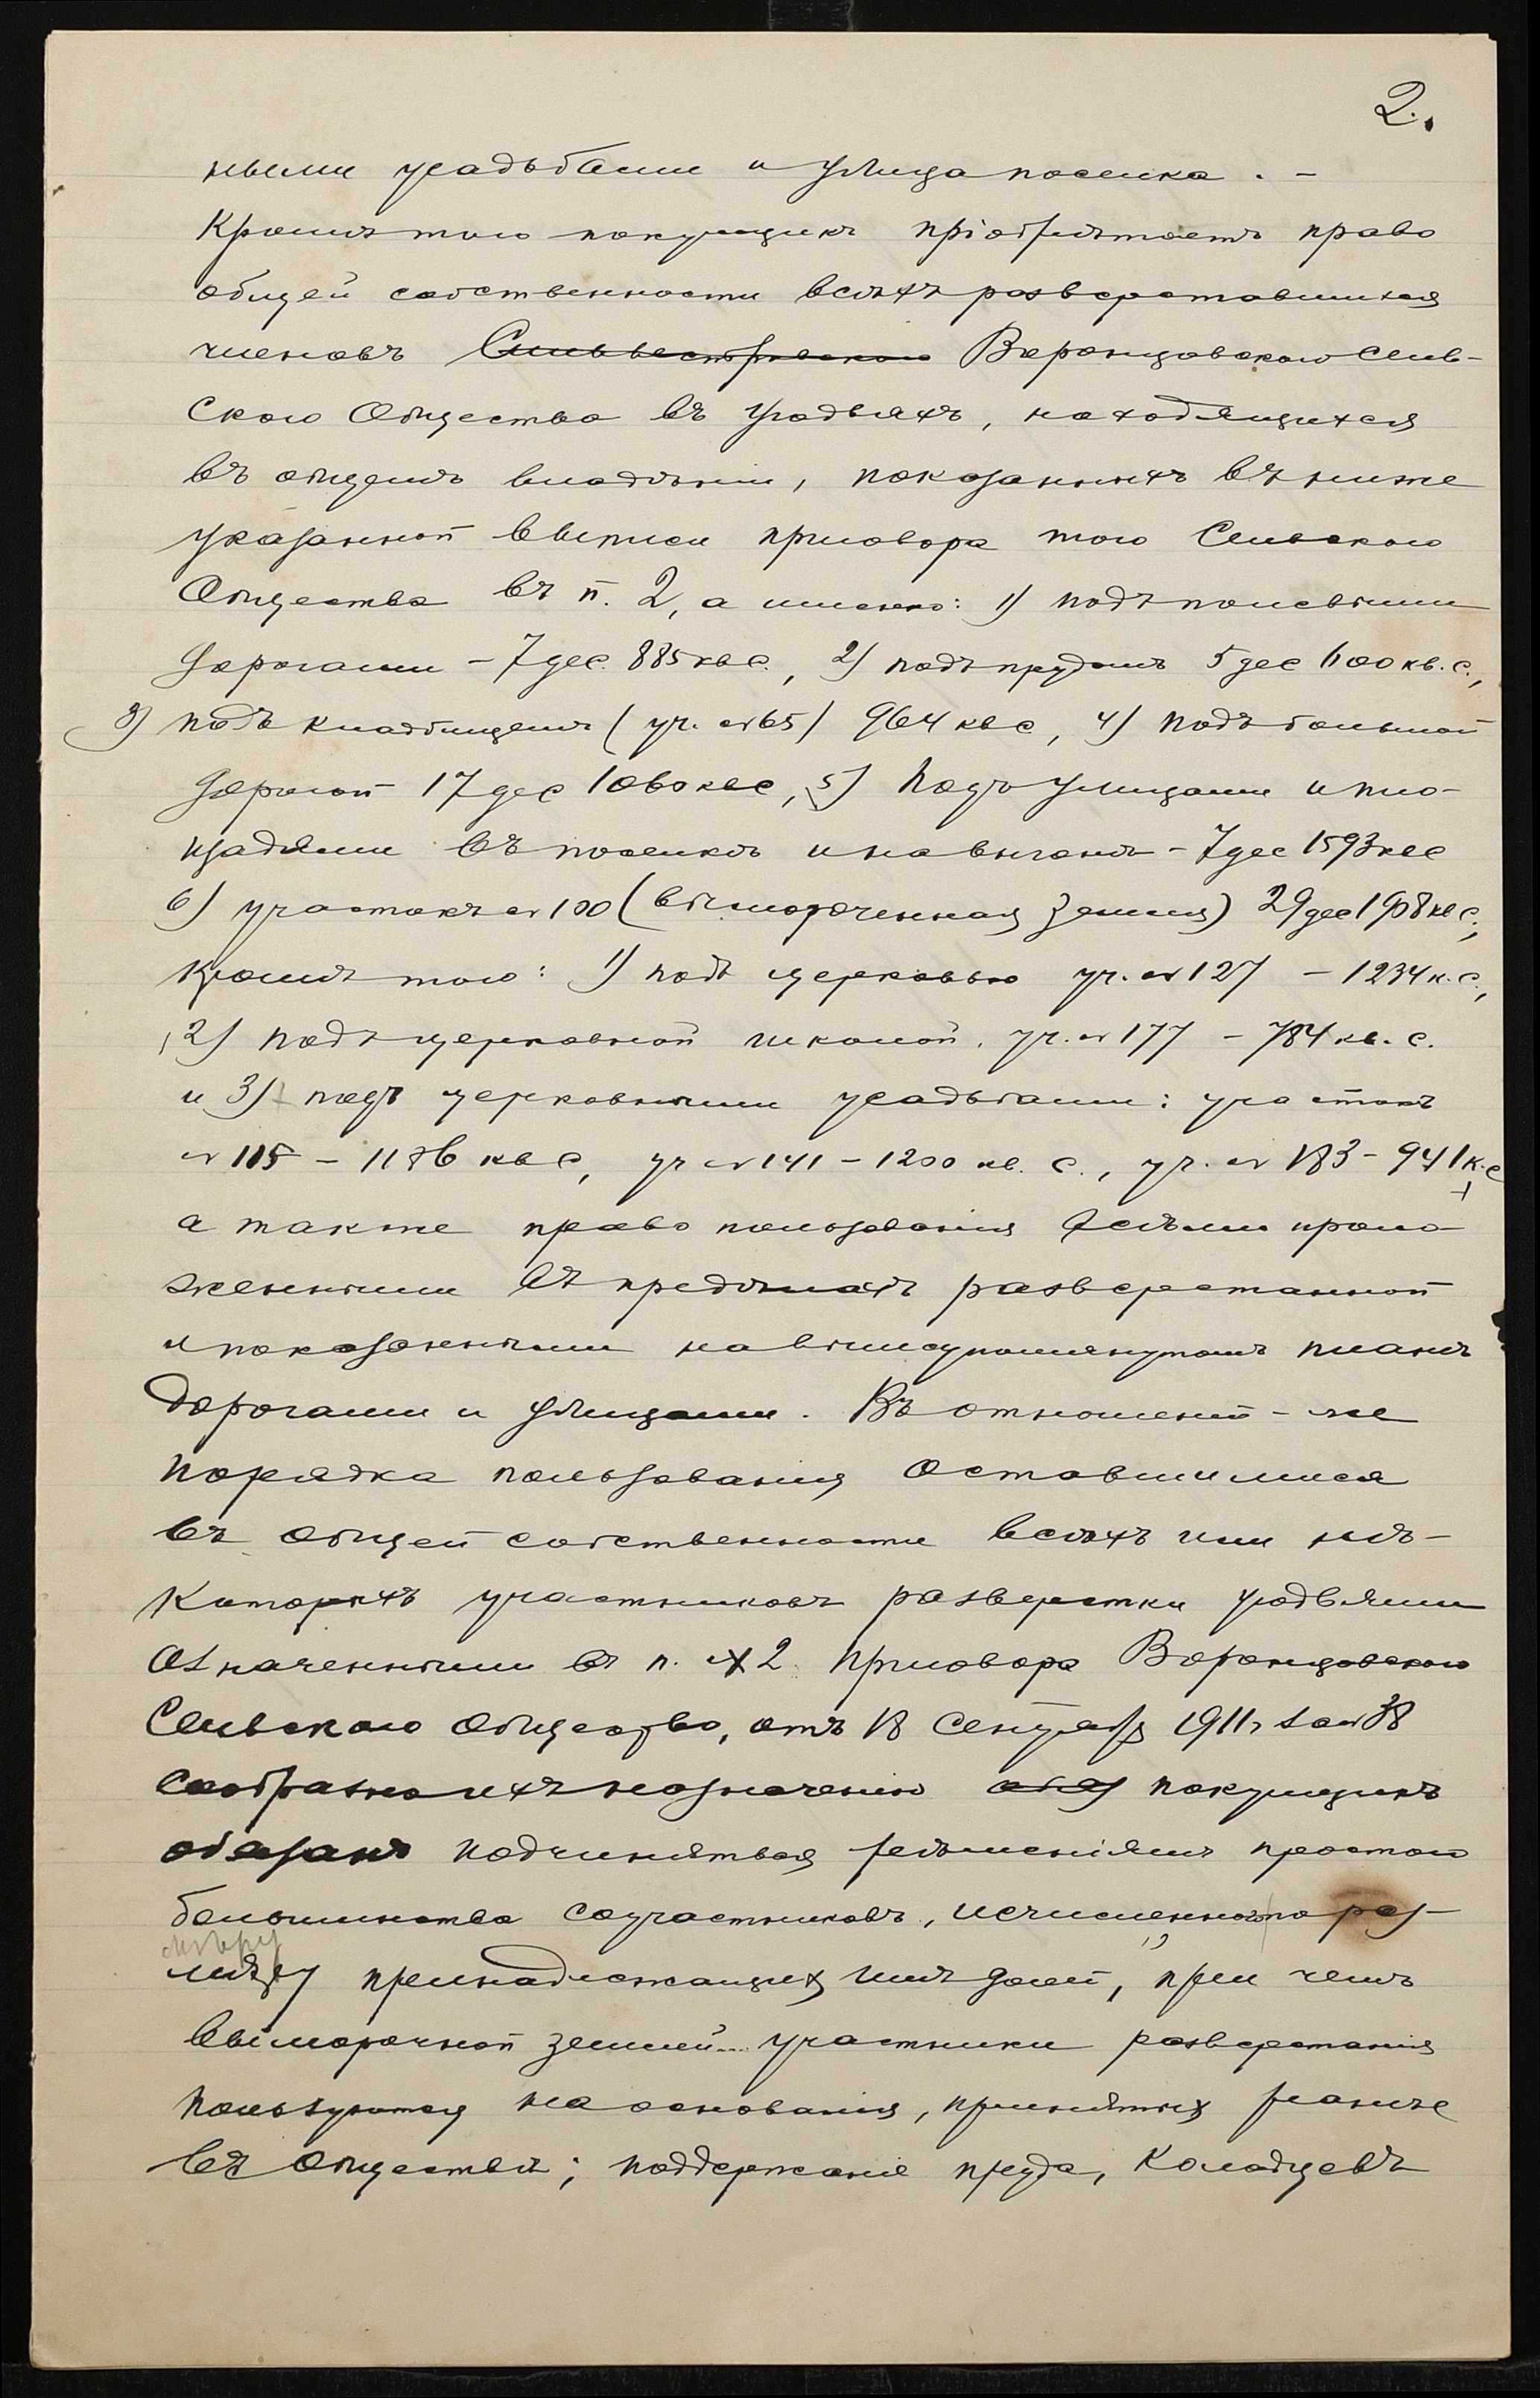 2.
ными усадьбами и улица поселка. -
Кромѣ того покупщикъ пріобрѣтаетъ право
общей собственности всѣхъ разверставшихся
членовъ Сильвестровскаго Воронцовскаго Сель-
скаго Общества въ угодьяхъ, находящихся
въ общемъ владѣніи, показанныхъ въ ниже
указанной выписи приговора того Сельскаго
Общества въ п. 2, а именно: 1) подъ полевыми
дорогами - 7 дес. 885 кв с., 2) подъ прудомъ 5 дес 600 кв. с.,
3) подъ кладбищемъ (уч. № 65) 964 кв с, 4) подъ большой
дорогой 17 дес 1060 кв с, 5) подъ улицами и пло-
щадями въ поселкѣ и на выгонѣ - 7 дес 1593 кв с
6) участокъ № 100 (вымороченная земля) 29 дес 1908 кв с.,
кромѣ того: 1) подъ церковью уч. № 127 - 1234 к. с.,
2) подъ церковной школой, уч. № 177 - 784 кв. с.
и 3) подъ церковными усадьбами: участокъ
№ 115 - 1176 кв с, уч № 141 - 1200 кв. с., уч. № 183 - 941 к. с
а также право пользованія всѣми проло-
женными въ предѣлахъ разверстанной
и показанными на вышеупомянутомъ планѣ
дорогами и улицами. Въ отношеніи - же
порядка пользованія оставшимися
въ общей собственности всѣхъ или нѣ-
которыхъ участниковъ разверстки угодьями
означенными въ п. № 2 приговора Воронцовскаго
Сельскаго Общества, отъ 18 Сентября 1911 г за № 38
сообразно ихъ назначенію покупщикъ
обязанъ подчиняться рѣшеніямъ простого
большинства соучастниковъ, исчисленного по раз-
мѣру
мѣру принадлежащихъ имъ долей, при чемъ
выморочной землей участники разверстанія
пользуются на основанія, принятыхъ раньше
въ Обществѣ; поддержаніе пруда, колодцевъ